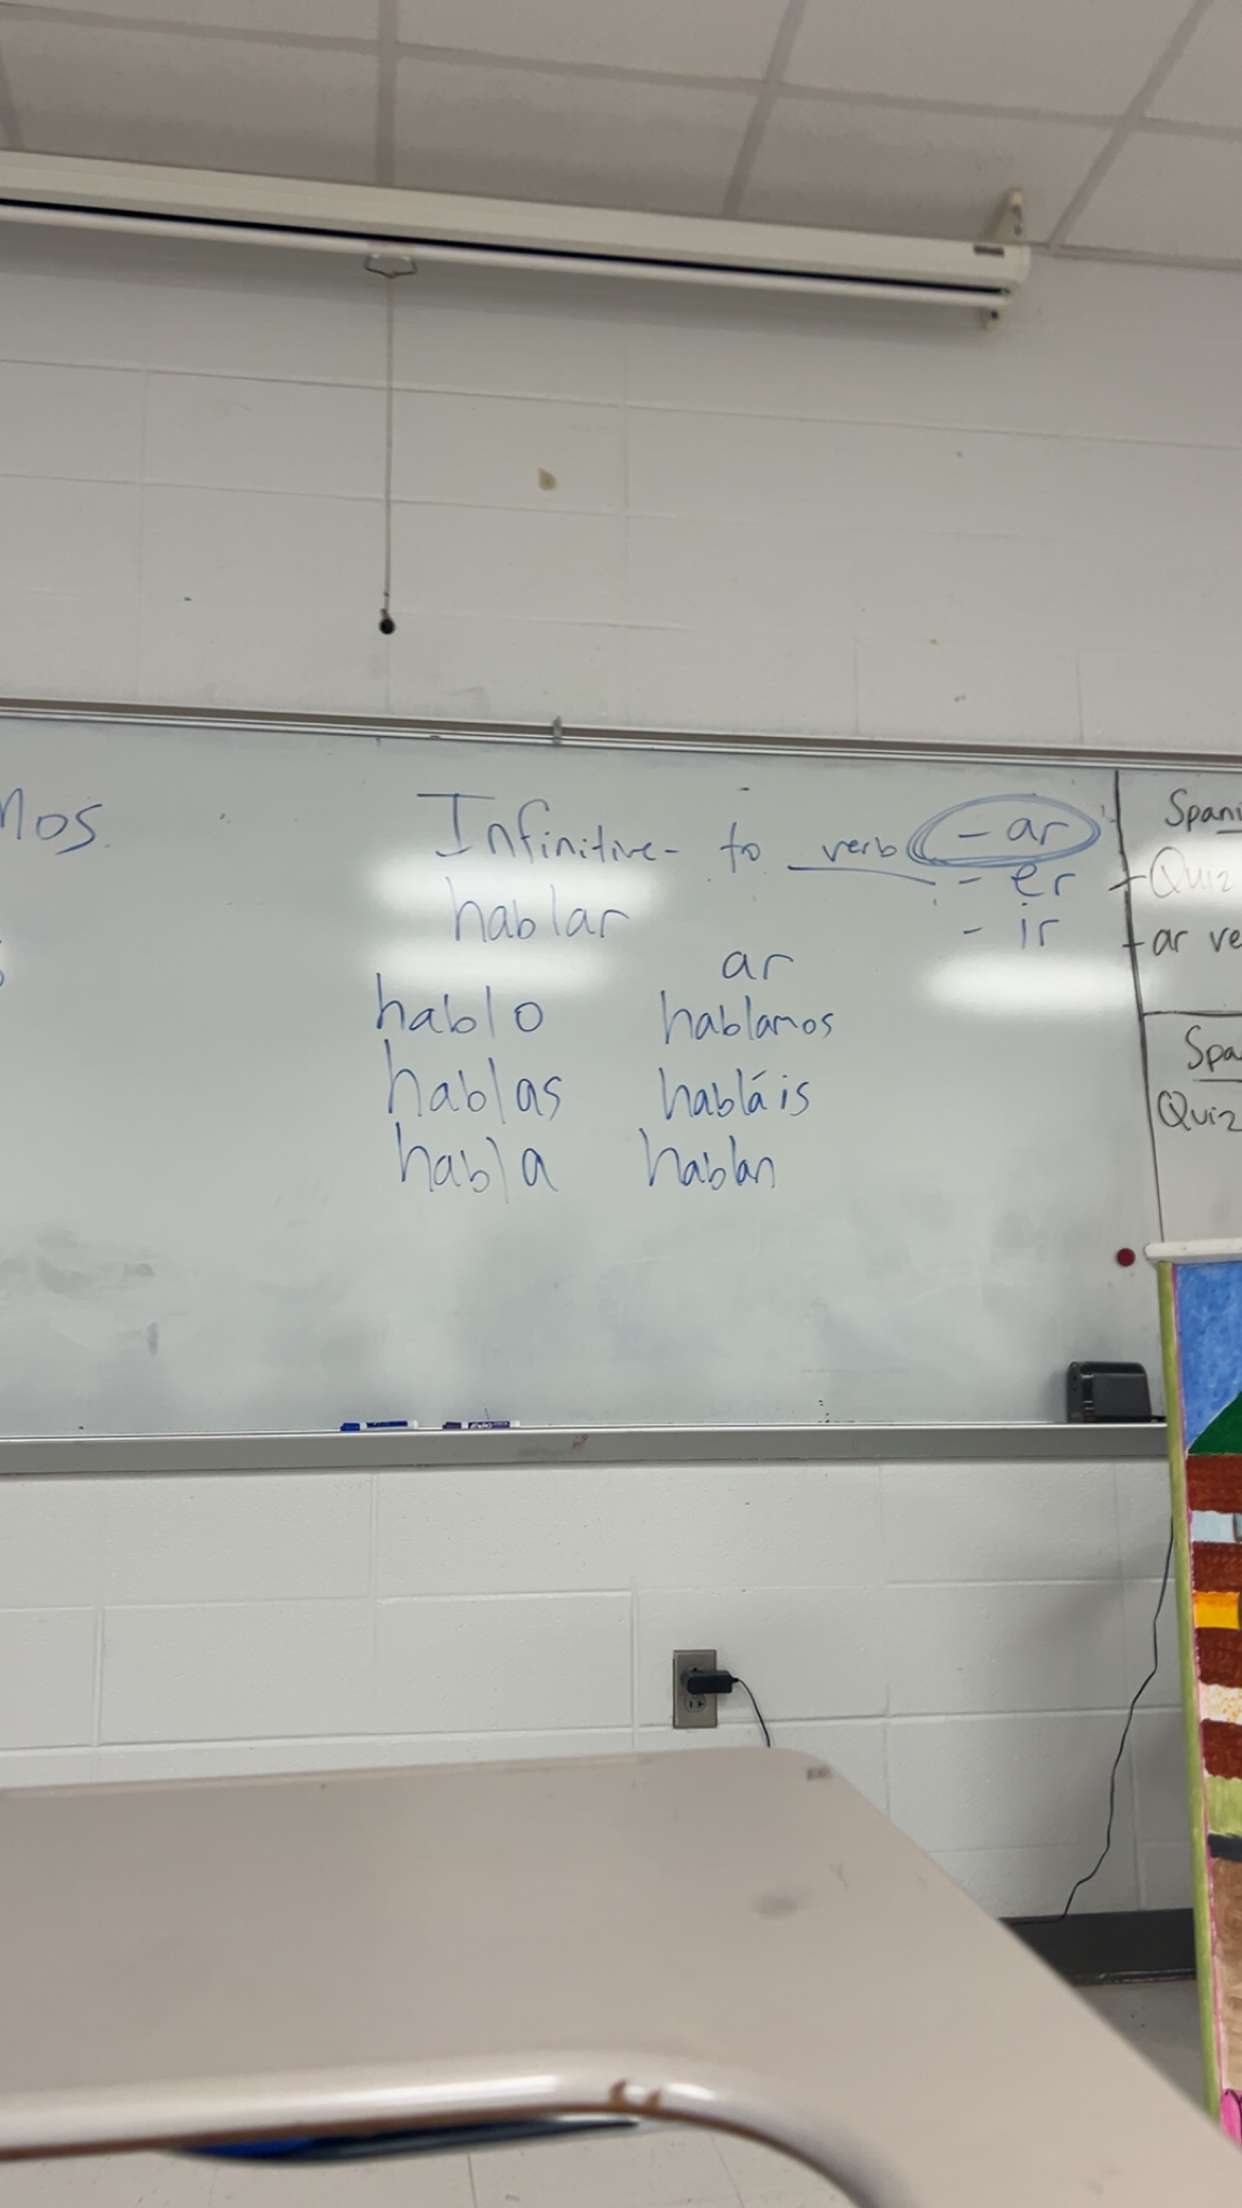 mos
Infinitive - to verb - ar
- er
- ir
hablar
ar
hablo hablamos
hablas habláis
habla hablan
Spani
- Quiz
- ar ve
Spa
Quiz